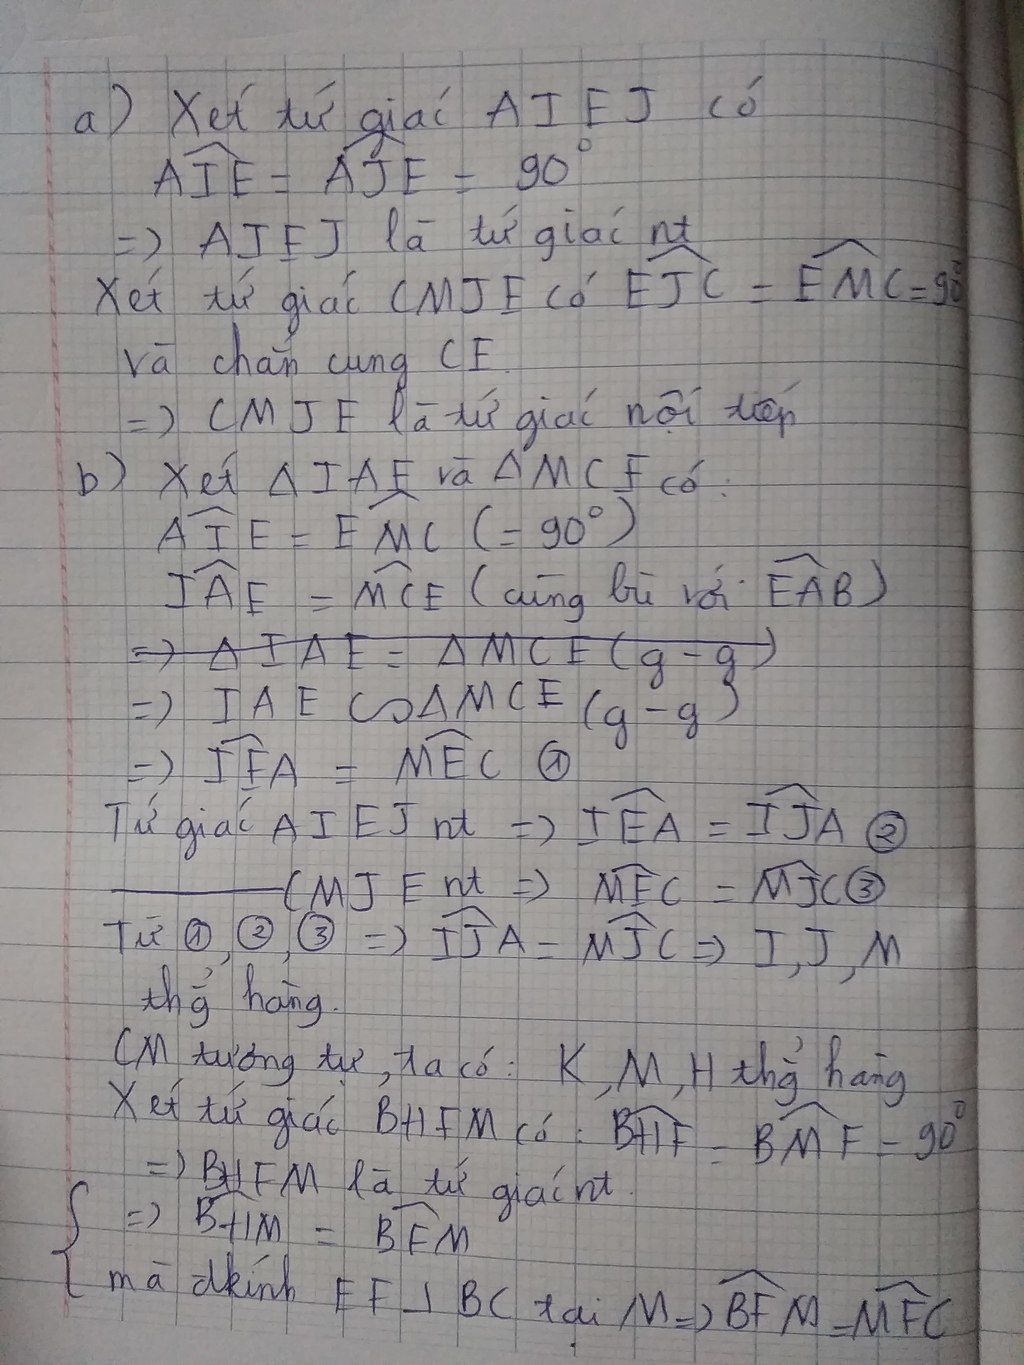 a) Xét tứ giác AIEJ có
AIE = AJE = 90°
=) AIEJ là tứ giác nt
Xét tứ giác CMJE có EJC = EMC = 90°
và chắn cung CE.
=) CMJE là tứ giác nội tiếp
b) Xét Δ IAE và Δ MCE có:
AIE = EMC (= 90°)
IAE = MCE (cùng bù với EAB)
=) Δ IAE = Δ MCE (g-g)
=) IAE ∽ Δ MCE (g-g)
=) IEA = MEC ①
Tứ giác AIEJ nt =) IEA = IJA ②
——— CMJE nt =) MEC = MJC ③
Từ ①, ②, ③ =) IJA = MJC =) I, J, M
thẳng hàng.
CM tương tự, ta có: K, M, H thẳng hàng
Xét tứ giác BHFM có: BHF = BMF = 90°
=) BHFM là tứ giác nt.
=) BHM = BFM
mà đkính EF ⊥ BC tại M =) BFM = MFC